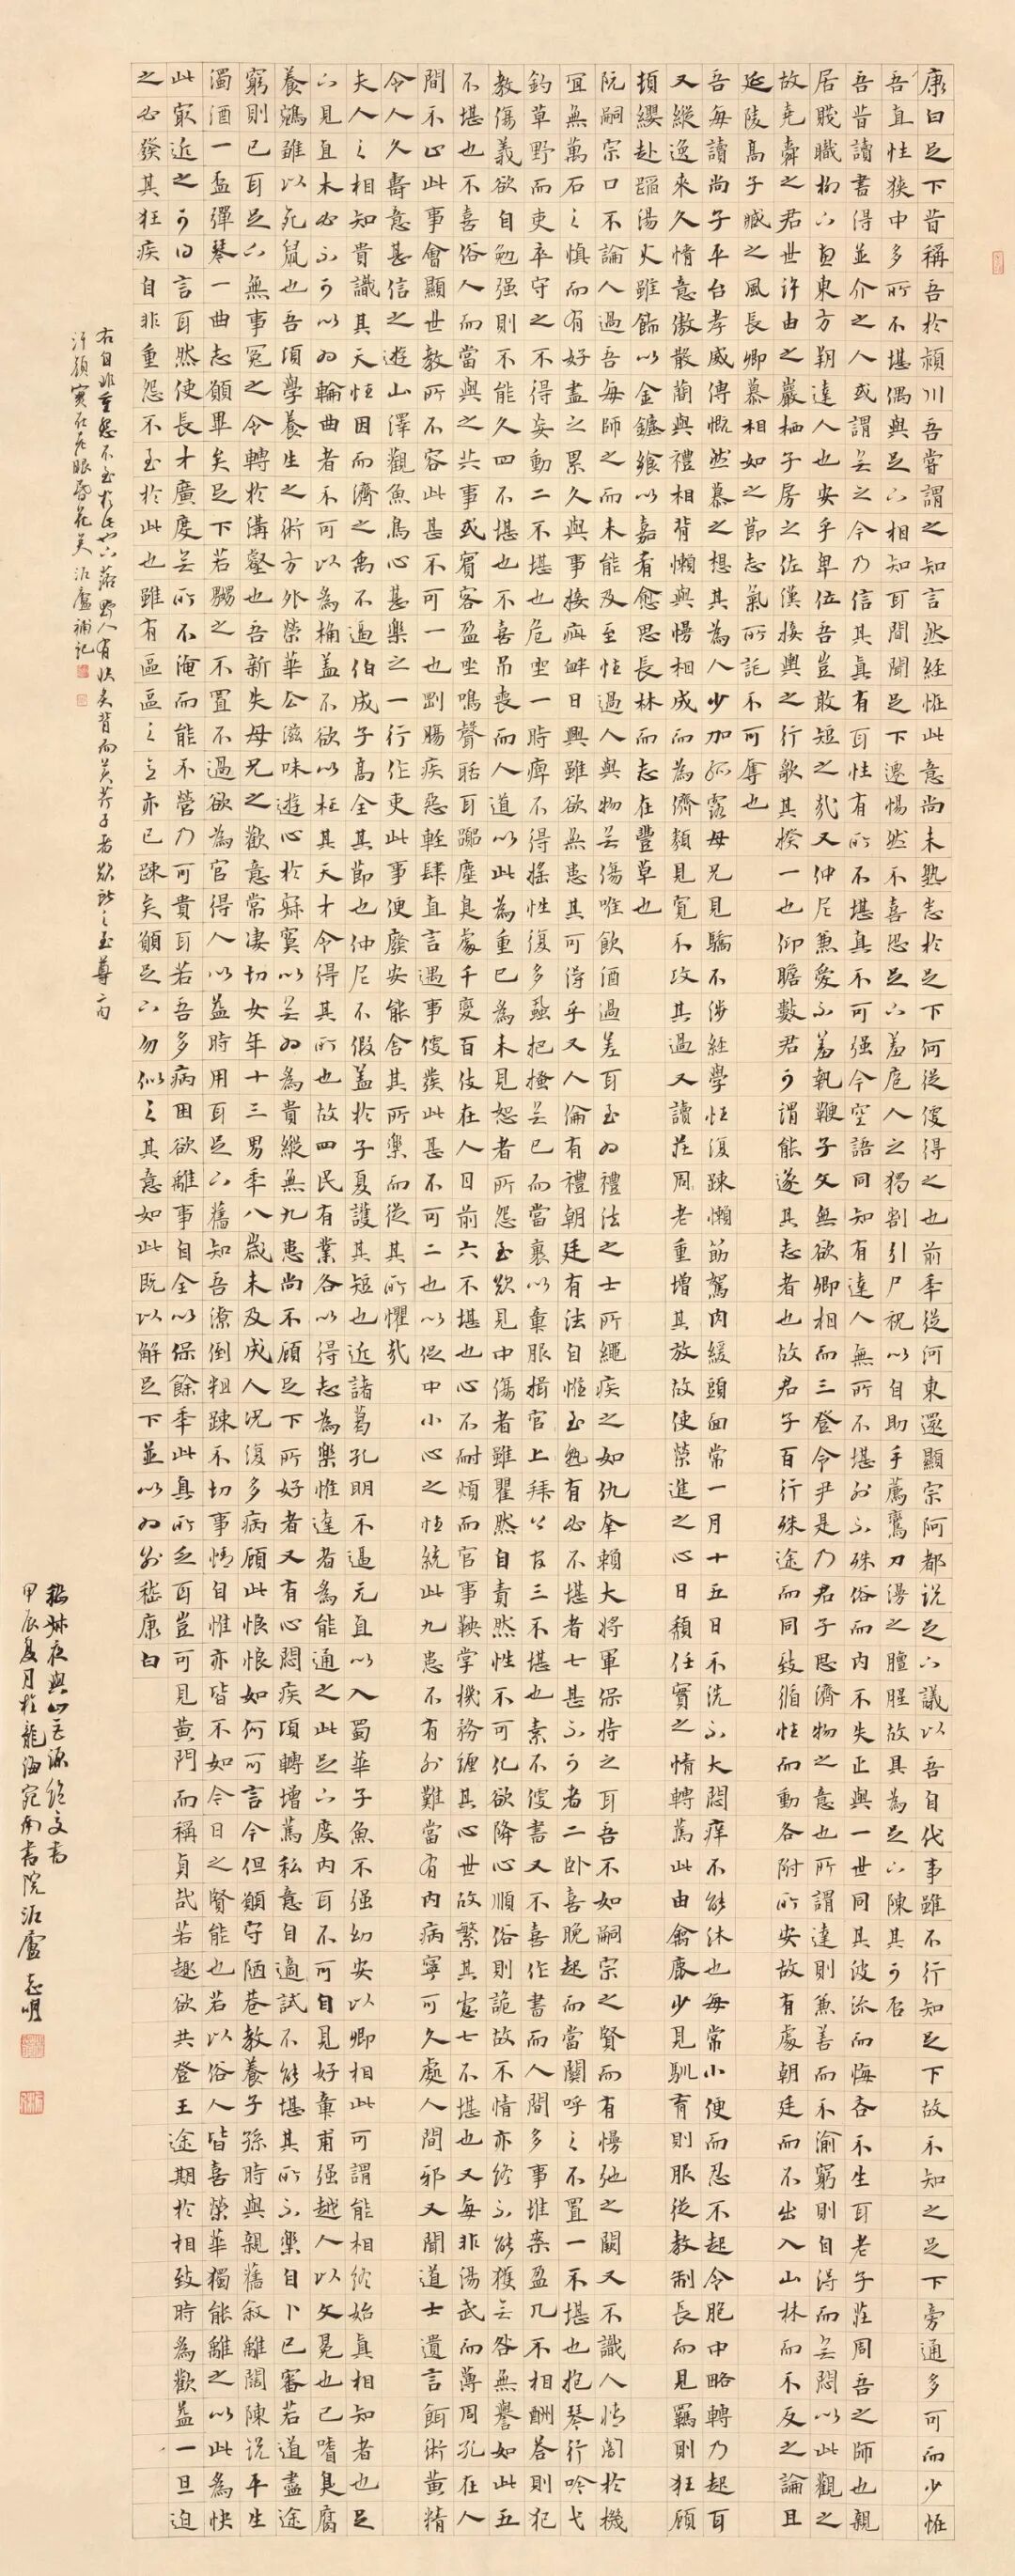 康白足下昔稱吾於潁川吾嘗謂之知言然經怪此意尚未熟悉於足下何從便得之也前年從河東還顯宗阿都說足下議以吾自代事雖不行知足下故不知之足下旁通多可而少怪
吾直性狹中多所不堪偶與足下相知耳間聞足下遷惕然不喜恐足下羞庖人之獨割引尸祝以自助手薦鸞刀漫之膻腥故具為足下陳其可否
吾昔讀書得並介之人或謂無之今乃信其真有耳性有所不堪真不可强今空語同知有達人無所不堪外不殊俗而內不失正與一世同其波流而悔吝不生耳老子莊周吾之師也親
居賤職柳下惠東方朔達人也安乎卑位吾豈敢短之哉又仲尼兼愛不羞執鞭子文無欲卿相而三登令尹是乃君子思濟物之意也所謂達則兼善而不渝窮則自得而無悶以此觀之
故堯舜之君世許由之巖栖子房之佐漢接輿之行歌其揆一也仰瞻數君可謂能遂其志者也故君子百行殊途而同致循性而動各附所安故有處朝廷而不出入山林而不反之論且
延陵高子臧之風長卿慕相如之節志氣所託不可奪也
吾每讀尚子平台孝威傳慨然慕之想其為人少加孤露母兄見驕不涉經學性復踈懶筋駑肉緩頭面常一月十五日不洗不大悶痒不能沐也每常小便而忍不起令胞中略轉乃起耳
又縱逸來久情意傲散簡與禮相背懶與慢相成而為儕類見寬不攻其過又讀莊周老重增其放故使榮進之心日頹任實之情轉篤此由禽鹿少見馴育則服從教制長而見羈則狂顧
頓纓赴蹈湯火雖飾以金鑣饗以嘉肴愈思長林而志在豐草也
阮嗣宗口不論人過吾每師之而未能及至性過人與物無傷唯飲酒過差耳至為禮法之士所繩疾之如仇幸賴大將軍保持之耳吾不如嗣宗之賢而有慢弛之闕又不識人情闇於機
宜無萬石之慎而有好盡之累久與事接疵釁日興雖欲無患其可得乎又人倫有禮朝廷有法自惟至熟有必不堪者七甚不可者二臥喜晚起而當關呼之不置一不堪也抱琴行吟弋
釣草野而吏卒守之不得妄動二不堪也危坐一時痺不得搖性復多蝨把搔無已而當裹以章服揖官上拜公官三不堪也素不便書又不喜作書而人間多事堆案盈几不相酬答則犯
教傷義欲自勉强則不能久四不堪也不喜吊喪而人道以此為重已為未見恕者所怨至欲見中傷者雖瞿然自責然性不可化欲降心順俗則詭故不情亦終不能獲無咎無譽如此五
不堪也不喜俗人而當與之共事或賓客盈坐鳴聲聒耳囂塵臭處千變百伎在人目前六不堪也心不耐煩而官事鞅掌機務纏其心世故繁其慮七不堪也又每非湯武而薄周孔在人
間不止此事會顯世教所不容此甚不可一也剛腸疾惡輕肆直言遇事便發此甚不可二也以促中小心之性統此九患不有外難當有內病寧可久處人間邪又聞道士遺言餌術黃精
令人久壽意甚信之遊山澤觀魚鳥心甚樂之一行作吏此事便廢安能舍其所樂而從其所懼哉
夫人之相知貴識其天性因而濟之禹不逼伯成子高全其節也仲尼不假蓋於子夏護其短也近諸葛孔明不逼元直以入蜀華子魚不强幼安以卿相此可謂能相終始真相知者也足
下見直木必不可以為輪曲者不可以為桷蓋不欲以枉其天才令得其所也故四民有業各以得志為樂惟達者為能通之此足下度內耳不可自見好章甫强越人以文冕也己嗜臭腐
養鵷雛以死鼠也吾頃學養生之術方外榮華去滋味遊心於寂寞以無為為貴縱無九患尚不顧足下所好者又有心悶疾頃轉增篤私意自適試不能堪其所不樂自卜已審若道盡途
窮則已耳足下無事冤之令轉於溝壑也吾新失母兄之歡意常凄切女年十三男年八歲未及成人況復多病顧此恨恨如何可言今但願守陋巷教養子孫時與親舊敘離闊陳說平生
濁酒一盃彈琴一曲志願畢矣足下若嬲之不置不過欲為官得人以益時用耳足下舊知吾潦倒粗踈不切事情自惟亦皆不如今日之賢能也若以俗人皆喜榮華獨能離之以此為快
此最近之可曰言耳然使長才廣度無所不淹而能不營乃可貴耳若吾多病困欲離事自全以保餘年此真所乏耳豈可見黃門而稱貞哉若趣欲共登王途期於相致時為歡益一旦迫
之必發其狂疾自非重怨不至於此也雖有區區之意亦已踈矣願足下勿似之其意如此既以解足下並以為別嵇康白
右自非重怨不至於此也下落野人有快炙背而美芹子者欲獻之至尊二句
汗顏實在老眼昏花矣泝廬補記
嵇叔夜與山巨源絕交書
甲辰夏月於龍海宛南書院泝廬志明